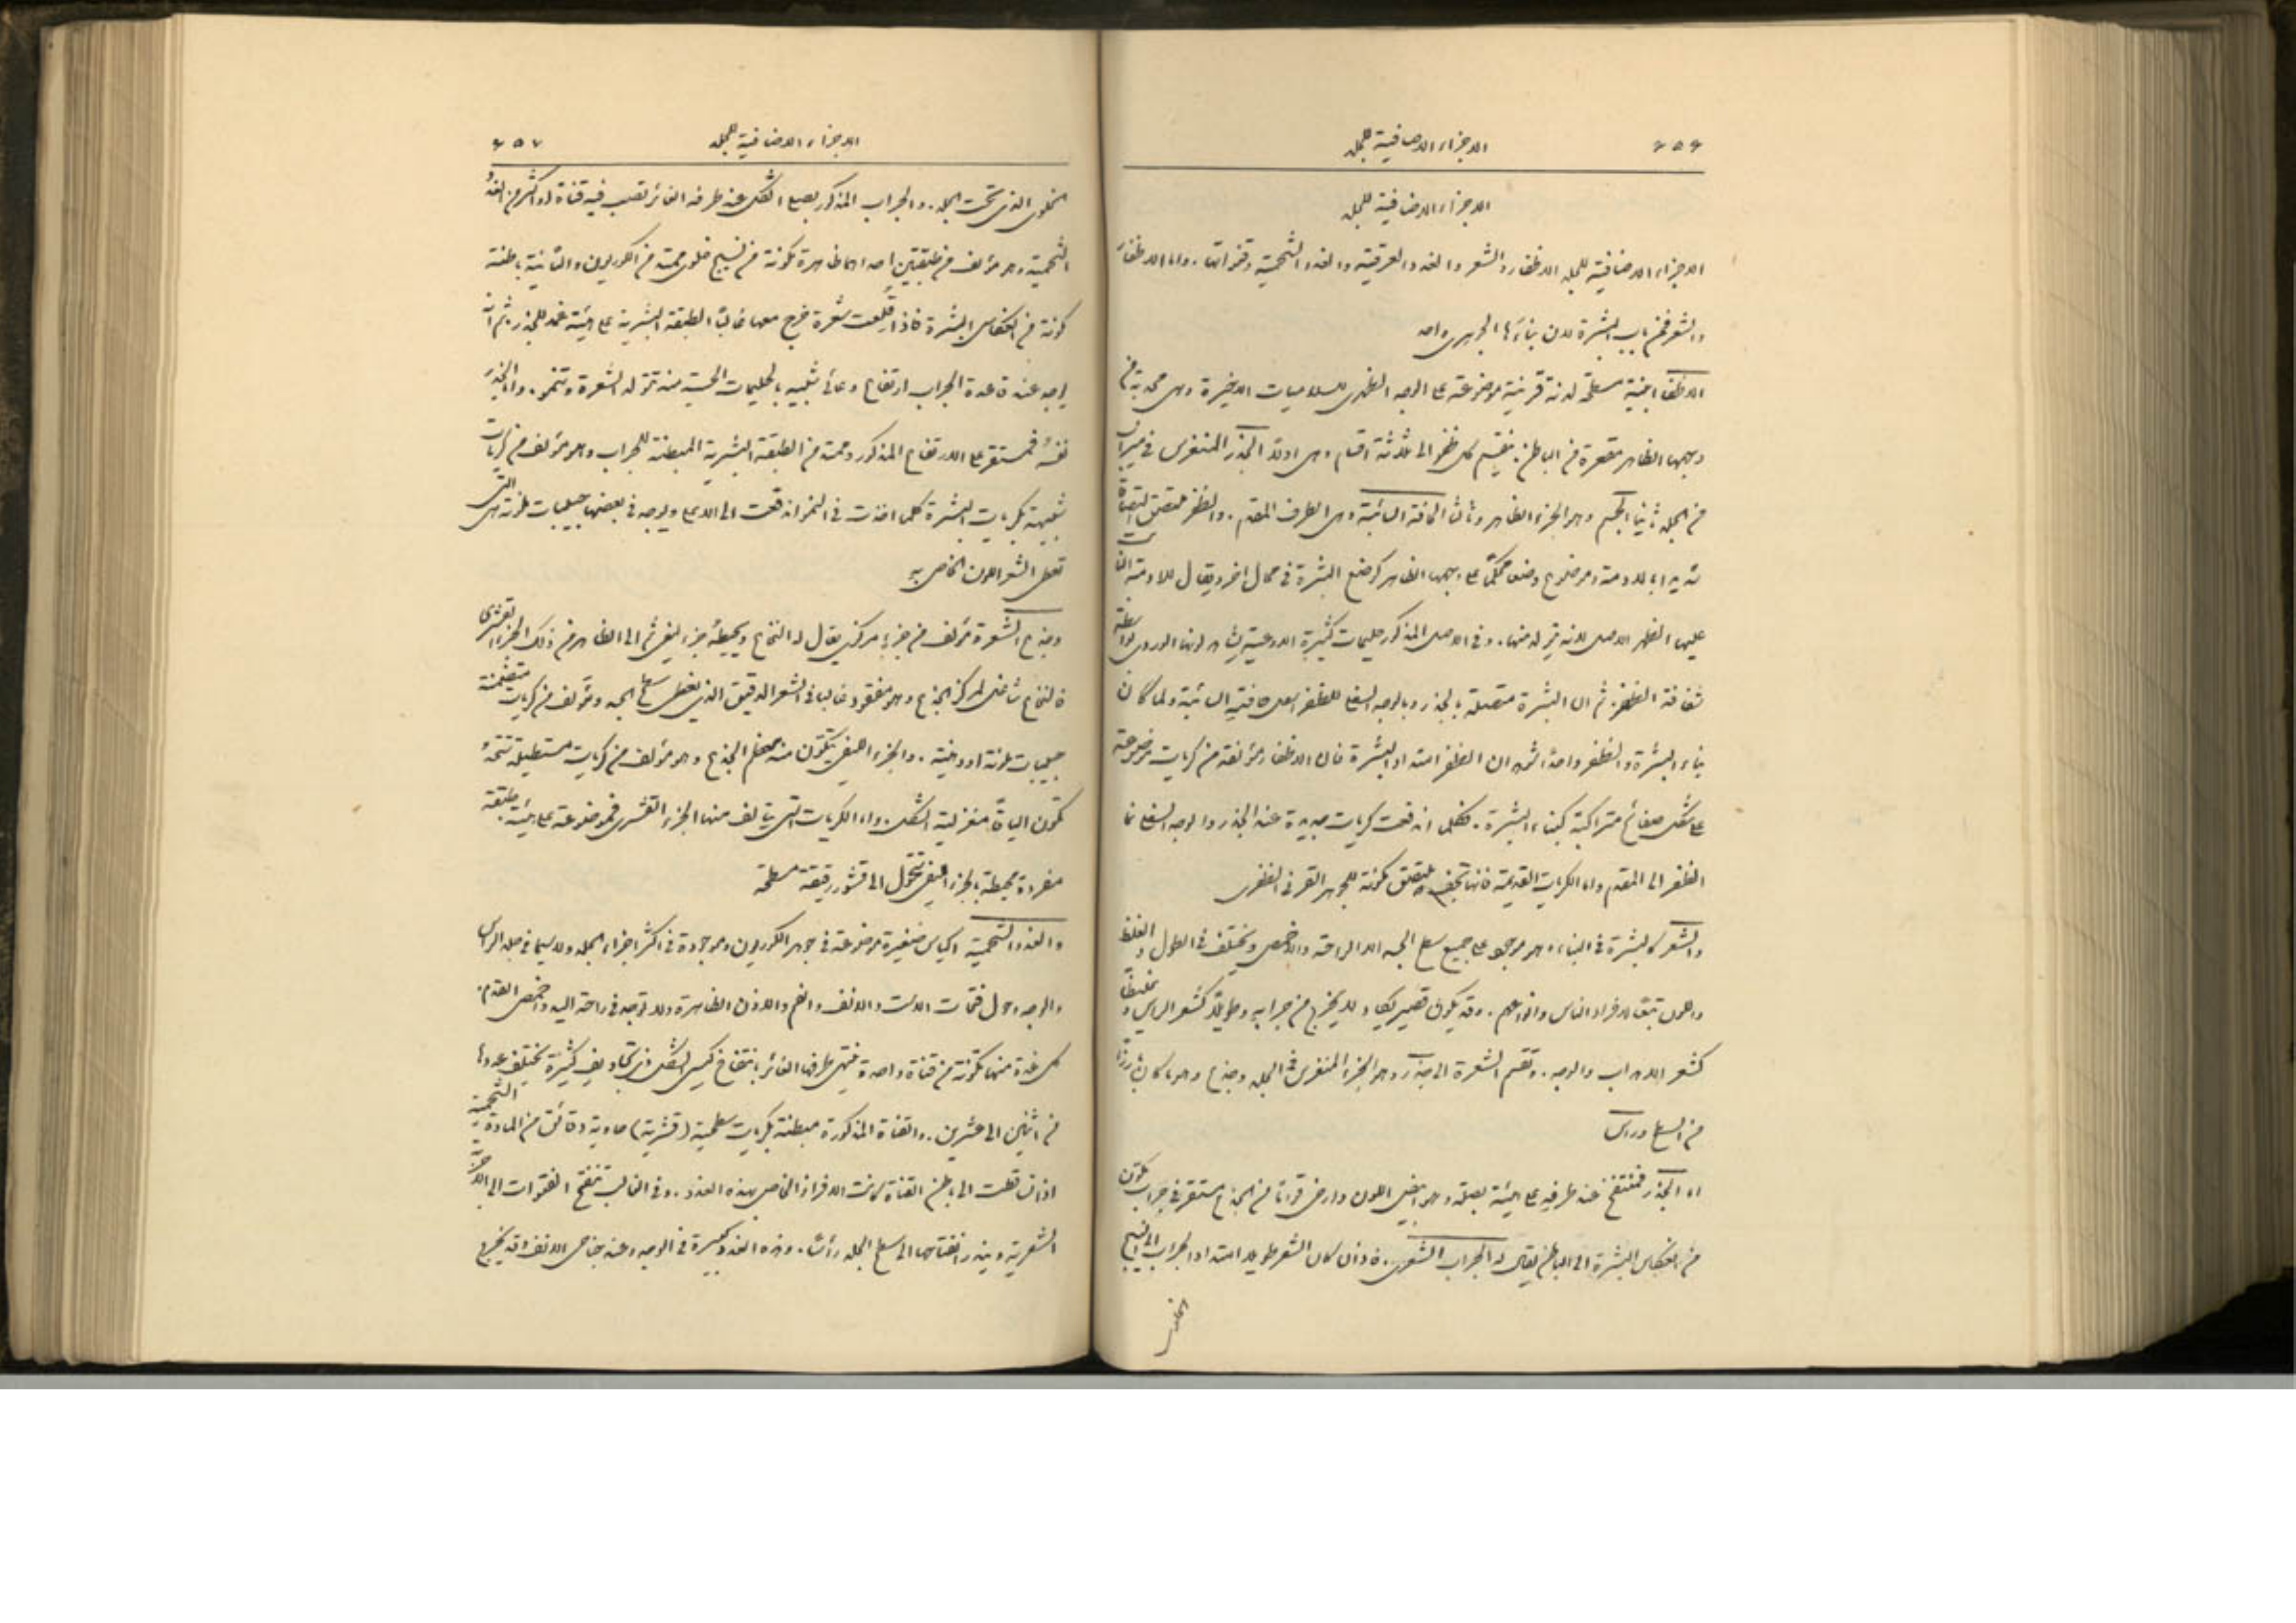 ٤٥٦ الاجزاء الاضافية للجلد
الاجزاء الاضافية للجلد
الاجزاء الاضافية للجلد الاظفار والشعر والغدد العرقية والغدد الشحمية وقنواتها. واما الاظفار
والشعر فمن باب البشرة لان بناءها الجوهري واحد
الاظفار ابنية مسطحة لدنة قرنية موضوعة على الوجه الظهري للسلاميات الاخيرة وهي محدبة من
وجهها الظاهر مقعرة من الباطن ينقسم كل ظفر الى ثلاثة اقسام وهي اولاً الجذر المنغرس في ميزاب
من الجلد ثانياً الجسم وهو الجزء الظاهر وثالثاً الحافة السائبة وهي الطرف المقدم. والظفر ملتصق التصاقاً
شديداً بالادمة وموضوع وضعاً محكماً على وجهها الظاهر كوضع البشرة في محال اخر ويقال للادمة التي
عليها الظفر الاصل لانه يتولد منها. وفي الاصل المذكور حليمات كثيرة الاوعية يشاهد لونها الوردي بواسطة
شفافة الظفر. ثم ان البشرة متصلة بالجذر وبالوجه السفلي للظفر الى حافته السائبة ولما كان
بناء البشرة والظفر واحداً ان الظفر امتداد البشرة فان الاظفار مؤلفة من كريات موضوعة
على شكل صفائح متراكبة كبناء البشرة. فكلما اندفعت كريات جديدة عند الجذر والوجه السفلي نما
الظفر الى المقدم واما الكريات القديمة فانها تجف وتلتصق مكونة للجوهر القرني الظفري
والشعر كالبشرة في البناء وهو موجود على جميع سطح الجسد الا الراحة والاخمص ويختلف في الطول والغلظ
واللون تبعاً لافراد الناس وانواعهم. وقد يكون قصيراً ولا يخرج من جرابه وطويلاً كشعر الراس وغليظاً
كشعر الاهداب والوجه. وتقسم الشعرة الى جذر وهو الجزء المنغرس في الجلد وجذع وهو ما كان بارزاً
من السطح وراس
اما الجذر فمنتفخ عند طرفه على هيئة بصلة وهو ابيض اللون وارخى قواماً من الجذع مستقر في جراب مكون
من انعكاس البشرة الى الباطن يقال له الجراب الشعري. فاذا كان الشعر طويلا امتد الجراب الى النسيج
الخلوي
الاجزاء الاضافية للجلد ٤٥٧
الخلوي الذي تحت الجلد. والجراب المذكور بصلي الشكل عند طرفه الغائر تصب فيه قناة او اكثر من الغدد
الشحمية وهو مؤلف من طبقتين احداهما ظاهرة مكونة من نسيج خلوي ممتد من الكوريون والثانية باطنة
مكونة من انعكاس البشرة فاذا قلعت شعرة خرج معها غالباً الطبقة البشرية على هيئة غمد للجذر ثم انه
يوجد عند قاعدة الجراب ارتفاع وعائي شبيه بالحليمات الحسية منه تتولد الشعرة وتنمو. واما الجذر
نفسه فمستقر على الارتفاع المذكور وممتد من الطبقة البشرية المبطنة للجراب وهو مؤلف من كريات
شبيهة بكريات البشرة كلما اخذت في النمو اندفعت الى الاعلى ويوجد في بعضها حبيبات ملونة هي التي
تعطي الشعر اللون الخاص به
وجذع الشعرة مؤلف من جزء مركزي يقال له النخاع ويحيطه جزء ليفي ثم الى الظاهر من ذلك الجزء القشري
فالنخاع شاغل لمركز الجذع وهو مفقود غالبا في الشعر الدقيق الذي يغطي سطح الجسد ومؤلف من كريات متضمنة
حبيبات ملونة او دهنية. والجزء الليفي يتكون منه معظم الجذع وهو مؤلف من كريات مستطيلة متحدة
تكون اليافاً مغزلية الشكل. واما الكريات التي يتالف منها الجزء القشري فموضوعة على هيئة طبقة
مفردة محيطة بالجزء الليفي تتحول الى قشور رقيقة مسطحة
والغدد الشحمية اكياس صغيرة موضوعة في جوهر الكوريون وموجودة في اكثر اجزاء الجلد ولا سيما في جلد الراس
والوجه وحول فتحات الاست والانف والفم والاذن الظاهرة ولا توجد في راحة اليد واخمص القدم.
كل غدة منها مكونة من قناة واحدة تنتهي طرفها الغائر بانتفاخ كيسي الشكل ذي تجاويف كثيرة يختلف عددها
من اثنين الى عشرين. والقناة المذكورة مبطنة بكريات سطحية (قشرية) حاوية دقائق من المادة الشحمية
اذا سقطت الى باطن القناة كونت الافراز الخاص بهذه الغدد. وفي الغالب تنفتح القنوات الى الاجربة
الشعرية ويندر انفتاحها الى سطح الجلد رأساً. وهذه الغدد كبيرة في الوجه وعند جناحي الانف وقد يخرج